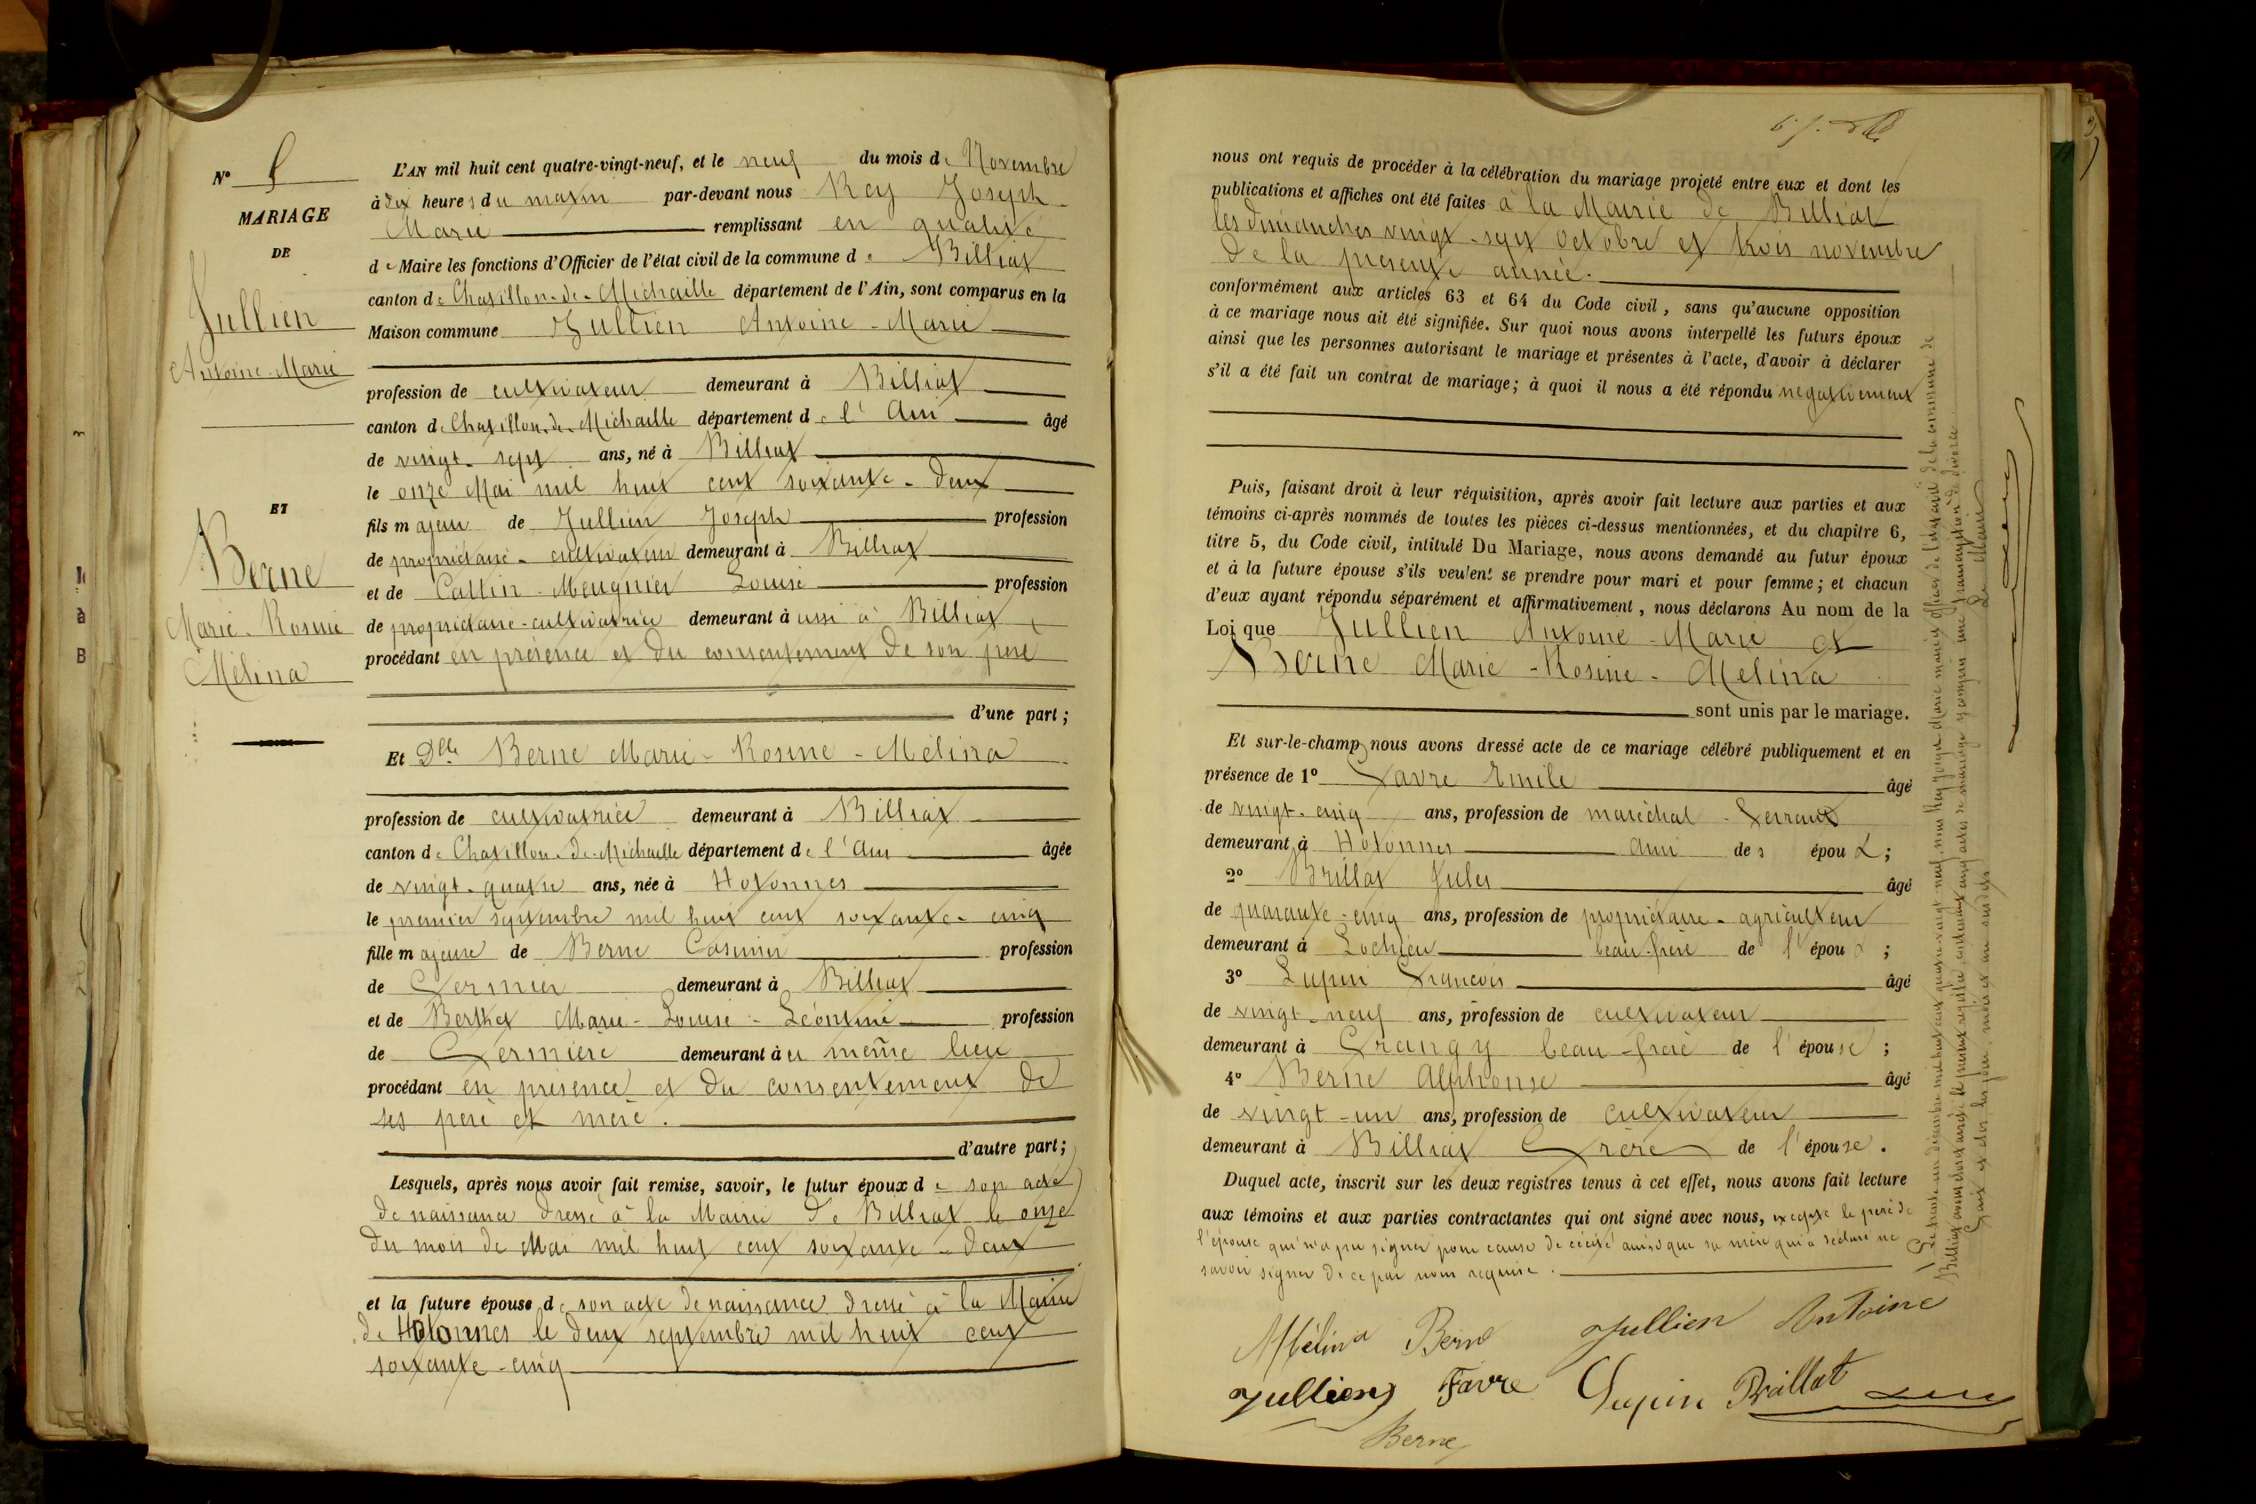 N°
MARIAGE
DE
Jullien
Antoine-Marie
ET
Berne
Marie-Rosine
Mélina
L'AN mil huit cent quatre-vingt-neuf, et le neuf du mois de Novembre
à dix heures du matin par-devant nous Rey Joseph
Marie remplissant en qualité
de Maire les fonctions d'Officier de l'état civil de la commune de Billiat
canton de Chatillon-de-Michaille département de l'Ain, sont comparus en la
Maison commune Jullien Antoine-Marie
profession de cultivateur demeurant à Billiat
canton de Chatillon-de-Michaille département de l'Ain âgé
de vingt-sept ans, né à Billiat
le onze Mai mil huit cent soixante-deux
fils majeur de Jullien Joseph profession
de propriétaire-cultivateur demeurant à Billiat
et de Cattin-Maugnier Louise profession
de propriétaire-cultivatrice demeurant aussi à Billiat
procédant en présence et du consentement de son père
d'une part;
Et Dlle Berne Marie-Rosine-Mélina
profession de cultivatrice demeurant à Billiat
canton de Chatillon-de-Michaille département de l'Ain âgée
de vingt-quatre ans, née à Hotonnes
le premier septembre mil huit cent soixante-cinq
fille majeure de Berne Casimir profession
de Fermier demeurant à Billiat
et de Berthet Marie-Louise-Léontine profession
de Fermière demeurant au même lieu
procédant en présence et du consentement de
ses père et mère.
d'autre part;
Lesquels, après nous avoir fait remise, savoir, le futur époux de son acte
de naissance dressé à la Mairie de Billiat le onze
du mois de Mai mil huit cent soixante-deux
et la future épouse de son acte de naissance dressé à la Mairie
de Hotonnes le deux septembre mil huit cent
soixante-cinq
nous ont requis de procéder à la célébration du mariage projeté entre eux et dont les
publications et affiches ont été faites à la Mairie de Billiat
les dimanches vingt-sept Octobre et trois novembre
de la présente année.
conformément aux articles 63 et 64 du Code civil, sans qu'aucune opposition
à ce mariage nous ait été signifiée. Sur quoi nous avons interpellé les futurs époux
ainsi que les personnes autorisant le mariage et présentes à l'acte, d'avoir à déclarer
s'il a été fait un contrat de mariage; à quoi il nous a été répondu négativement
Puis, faisant droit à leur réquisition, après avoir fait lecture aux parties et aux
témoins ci-après nommés de toutes les pièces ci-dessus mentionnées, et du chapitre 6,
titre 5, du Code civil, intitulé Du Mariage, nous avons demandé au futur époux
et à la future épouse s'ils veulent se prendre pour mari et pour femme; et chacun
d'eux ayant répondu séparément et affirmativement, nous déclarons Au nom de la
Loi que Jullien Antoine-Marie et
Berne Marie-Rosine-Mélina
sont unis par le mariage.
Et sur-le-champ nous avons dressé acte de ce mariage célébré publiquement et en
présence de 1° Favre Emile âgé
de vingt-cinq ans, profession de maréchal-ferrant
demeurant à Hotonnes ami des époux;
2° Brillat Jules âgé
de quarante-cinq ans, profession de propriétaire-agriculteur
demeurant à Lochieu beau-frère de l'époux;
3° Lupin François âgé
de vingt-neuf ans, profession de cultivateur
demeurant à Grangy beau-frère de l'épouse;
4° Berne Alphonse âgé
de vingt-un ans, profession de cultivateur
demeurant à Billiat Frère de l'épouse.
Duquel acte, inscrit sur les deux registres tenus à cet effet, nous avons fait lecture
aux témoins et aux parties contractantes qui ont signé avec nous, excepté le père de
l'épouse qui n'a pu signer pour cause de cécité ainsi que sa mère qui a déclaré ne
savoir signer de ce par nous requise.
Mélina Berne Jullien Antoine
Jullien Favre Lupin Brillat
Berne
Ce trente un décembre mil huit cent quatre-vingt-neuf, nous Rey Joseph Marie maire officier de l'état civil de la commune de
Billiat avons clos et arrêté le présent registre contenant cinq actes de mariage y compris une transcription de divorce
Le Maire